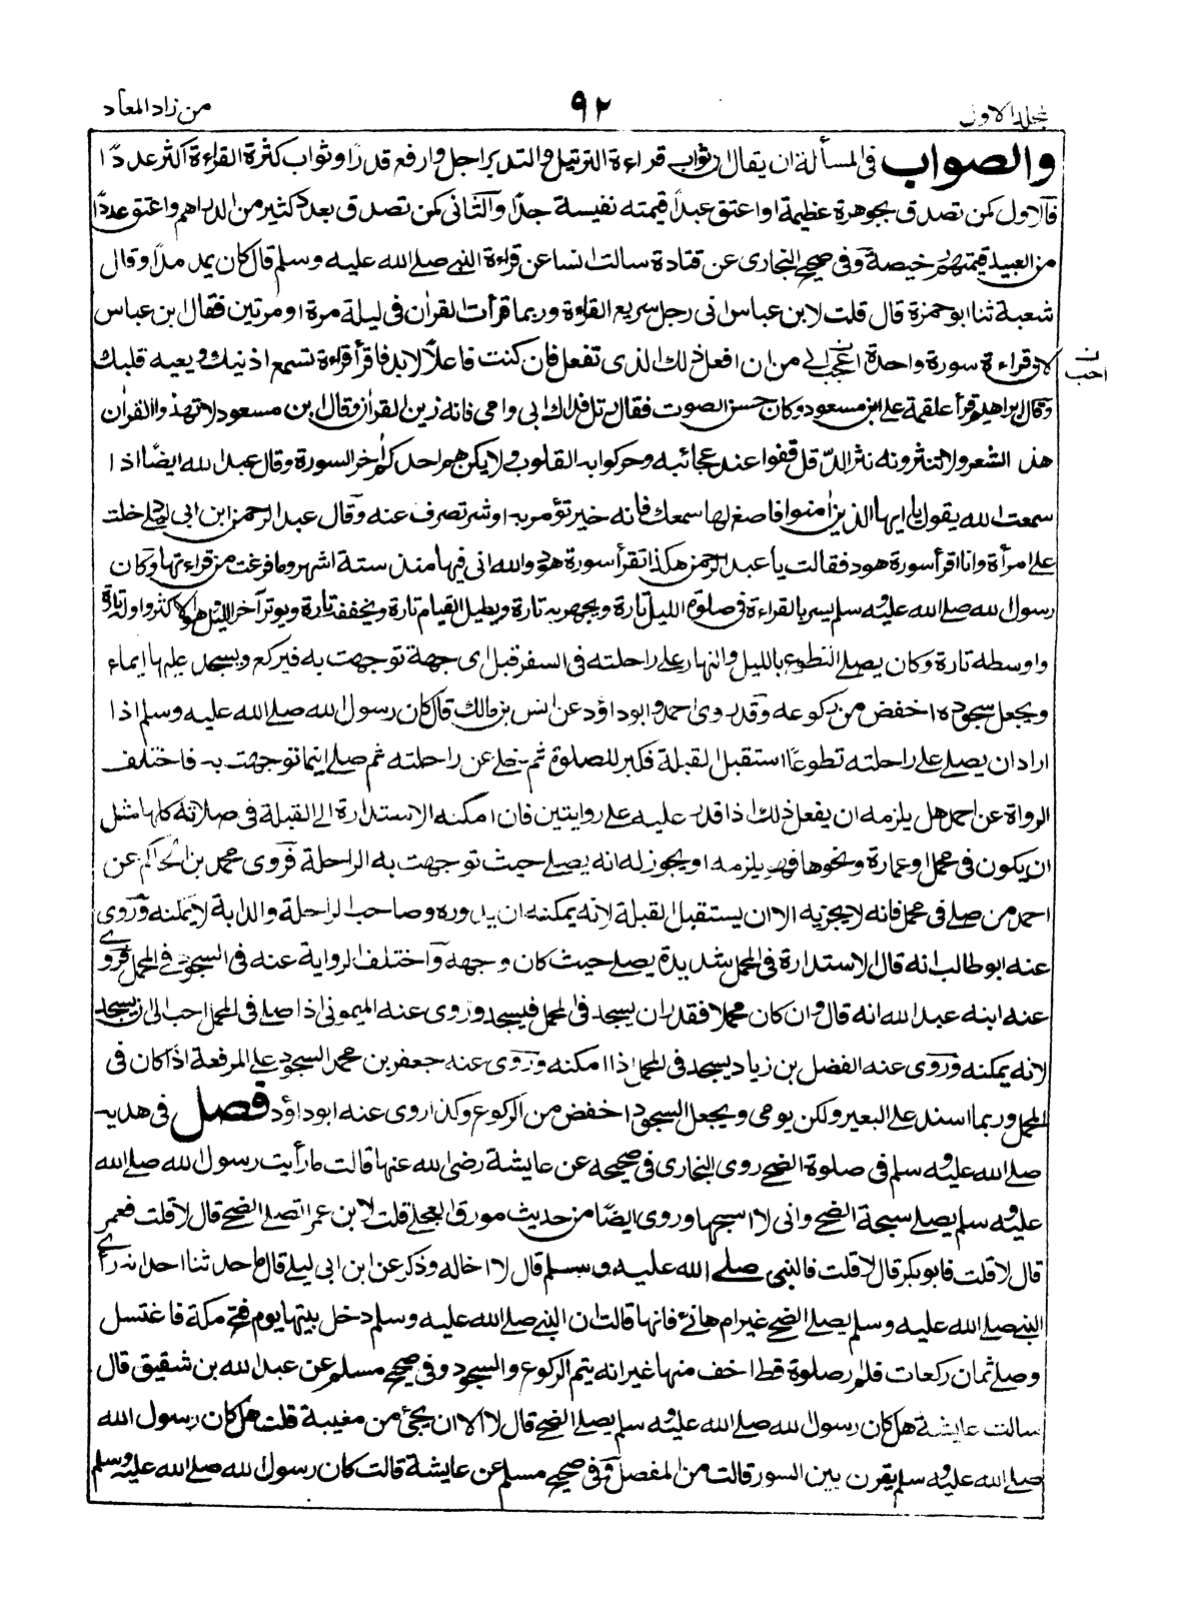 المجلد الاول
٩٢
من زاد المعاد
والصواب فى المسألة ان يقال ان ثواب قراءة الترتيل والتدبر اجل وارفع قدرًا وثواب كثرة القراءة اكثر عددًا
فالاول كمن تصدق بجوهرة عظيمة او اعتق عبدًا قيمته نفيسة جدًا والثانى كمن تصدق بعدد كثير من الدراهم واعتق عددًا
من العبيد قيمتهم رخيصة وفى صحيح البخارى عن قتادة سالت انسا عن قراءة النبى صلى الله عليه وسلم قال كان يمد مدًا وقال
شعبة ثنا ابو حمزة قال قلت لابن عباس انى رجل سريع القراءة وربما قرأت القرآن فى ليلة مرة او مرتين فقال ابن عباس
لان قراءة سورة واحدة اعجب الى من ان افعل ذلك الذى تفعل فان كنت فاعلًا لابد فاقرأ قراءة تسمع اذنيك ويعيه قلبك
ن
احب
وقال ابراهيم قرأ علقمة على ابن مسعود وكان حسن الصوت فقال رتل فداك ابى وامى فانه زين القرآن وقال ابن مسعود لا تهذوا القرآن
هذ الشعر ولا تنثرونه نثر الدقل قفوا عند عجائبه وحركوا به القلوب ولا يكن هم احدكم آخر السورة وقال عبد الله ايضًا اذا
سمعت الله يقول يا ايها الذين امنوا فاصغ لها سمعك فانه خير تؤمر به او شر تصرف عنه وقال عبد الرحمن ابن ابى ليلى دخلت
على امرأة وانا اقرأ سورة هود فقالت يا عبد الرحمن هكذا تقرأ سورة هود والله انى فيها منذ ستة اشهر وما فرغت من قراءتها وكان
رسول الله صلى الله عليه وسلم يسر بالقراءة فى صلوة الليل تارة ويجهر به تارة ويطيل القيام تارة ويخففه تارة ويوتر آخر الليل وهو الاكثر واوله تارة
واوسطه تارة وكان يصلى التطوع بالليل والنهار على راحلته فى السفر قبل اى جهة توجهت به فيركع ويسجد عليها ايماء
ويجعل سجوده اخفض من ركوعه وقد روى احمد وابو داؤد عن انس بن مالك قال كان رسول الله صلى الله عليه وسلم اذا
اراد ان يصلى على راحلته تطوعًا استقبل القبلة فكبر للصلوة ثم خلى عن راحلته ثم صلى اينما توجهت به فاختلف
الرواة عن احمد هل يلزمه ان يفعل ذلك اذا قدر عليه على روايتين فان امكنه الاستدارة الى القبلة فى صلاته كلها مثل
ان يكون فى محمل او عمارة ونحوها فهل يلزمه او يجوز له انه يصلى حيث توجهت به الراحلة فروى محمد بن الحاكم عن
احمد من صلى فى محمل فانه لا يجزيه الا ان يستقبل القبلة لانه يمكنه ان يدوره وصاحب الراحلة والدابة لا يمكنه وروى
عنه ابو طالب انه قال الاستدارة فى المحمل شديدة يصلى حيث كان وجهه واختلف الرواية عنه فى السجود فى المحمل فروى
عنه ابنه عبد الله انه قال وان كان محملا فقدر ان يسجد فى المحمل فيسجد وروى عنه الميمونى اذا صلى فى المحمل احب الى ان يسجد
لانه يمكنه وروى عنه الفضل بن زياد يسجد فى المحمل اذا امكنه وروى عنه جعفر بن محمد السجود على المرفعة اذا كان فى
المحمل وربما اسند على البعير ولكن يومى ويجعل السجود اخفض من الركوع وكذا روى عنه ابو داؤد فصل فى هديه
صلى الله عليه وسلم فى صلوة الضحى روى البخارى فى صحيحه عن عايشة رضى الله عنها قالت ما رأيت رسول الله صلى الله
عليه وسلم يصلى سبحة الضحى وانى لا اسبحها وروى ايضًا من حديث مورق العجلى قلت لابن عمر اتصلى الضحى قال لا قلت فعمر
قال لا قلت فابو بكر قال لا قلت فالنبى صلى الله عليه وسلم قال لا اخاله وذكر عن ابن ابى ليلى قال ما حدثنا احد انه رأى
النبى صلى الله عليه وسلم يصلى الضحى غير ام هانئ فانها قالت ان النبى صلى الله عليه وسلم دخل بيتها يوم فتح مكة فاغتسل
وصلى ثمان ركعات فلم ار صلوة قط اخف منها غير انه يتم الركوع والسجود وفى صحيح مسلم عن عبد الله بن شقيق قال
سالت عايشة هل كان رسول الله صلى الله عليه وسلم يصلى الضحى قال لا الا ان يجئ من مغيبة قلت هل كان رسول الله
صلى الله عليه وسلم يقرن بين السور قالت من المفصل وفى صحيح مسلم عن عايشة قالت كان رسول الله صلى الله عليه وسلم